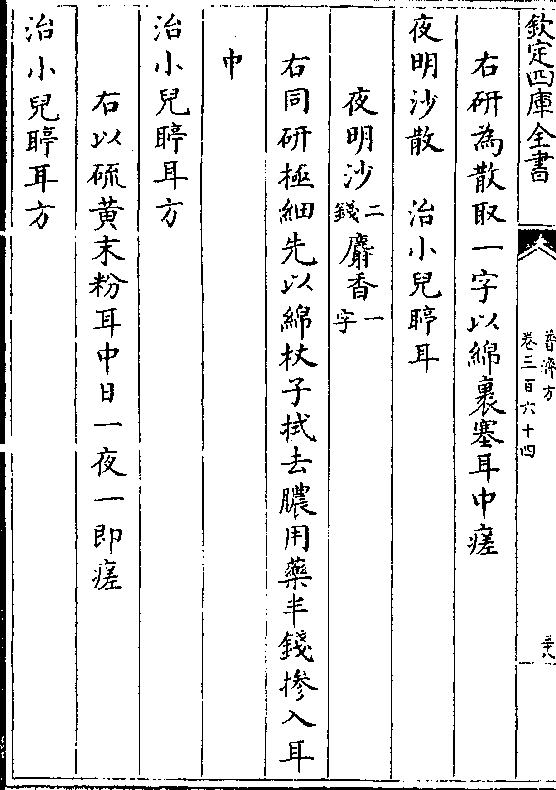 欽定四庫全書
普濟方
卷三百六十四
右研為散取一字以綿裹塞耳中瘥
夜明沙散　治小兒聤耳
夜明沙二錢麝香一字
右同研極細先以綿杖子拭去膿用藥半錢摻入耳
中
治小兒聤耳方
右以硫黄末粉耳中日一夜一即瘥
治小兒聤耳方